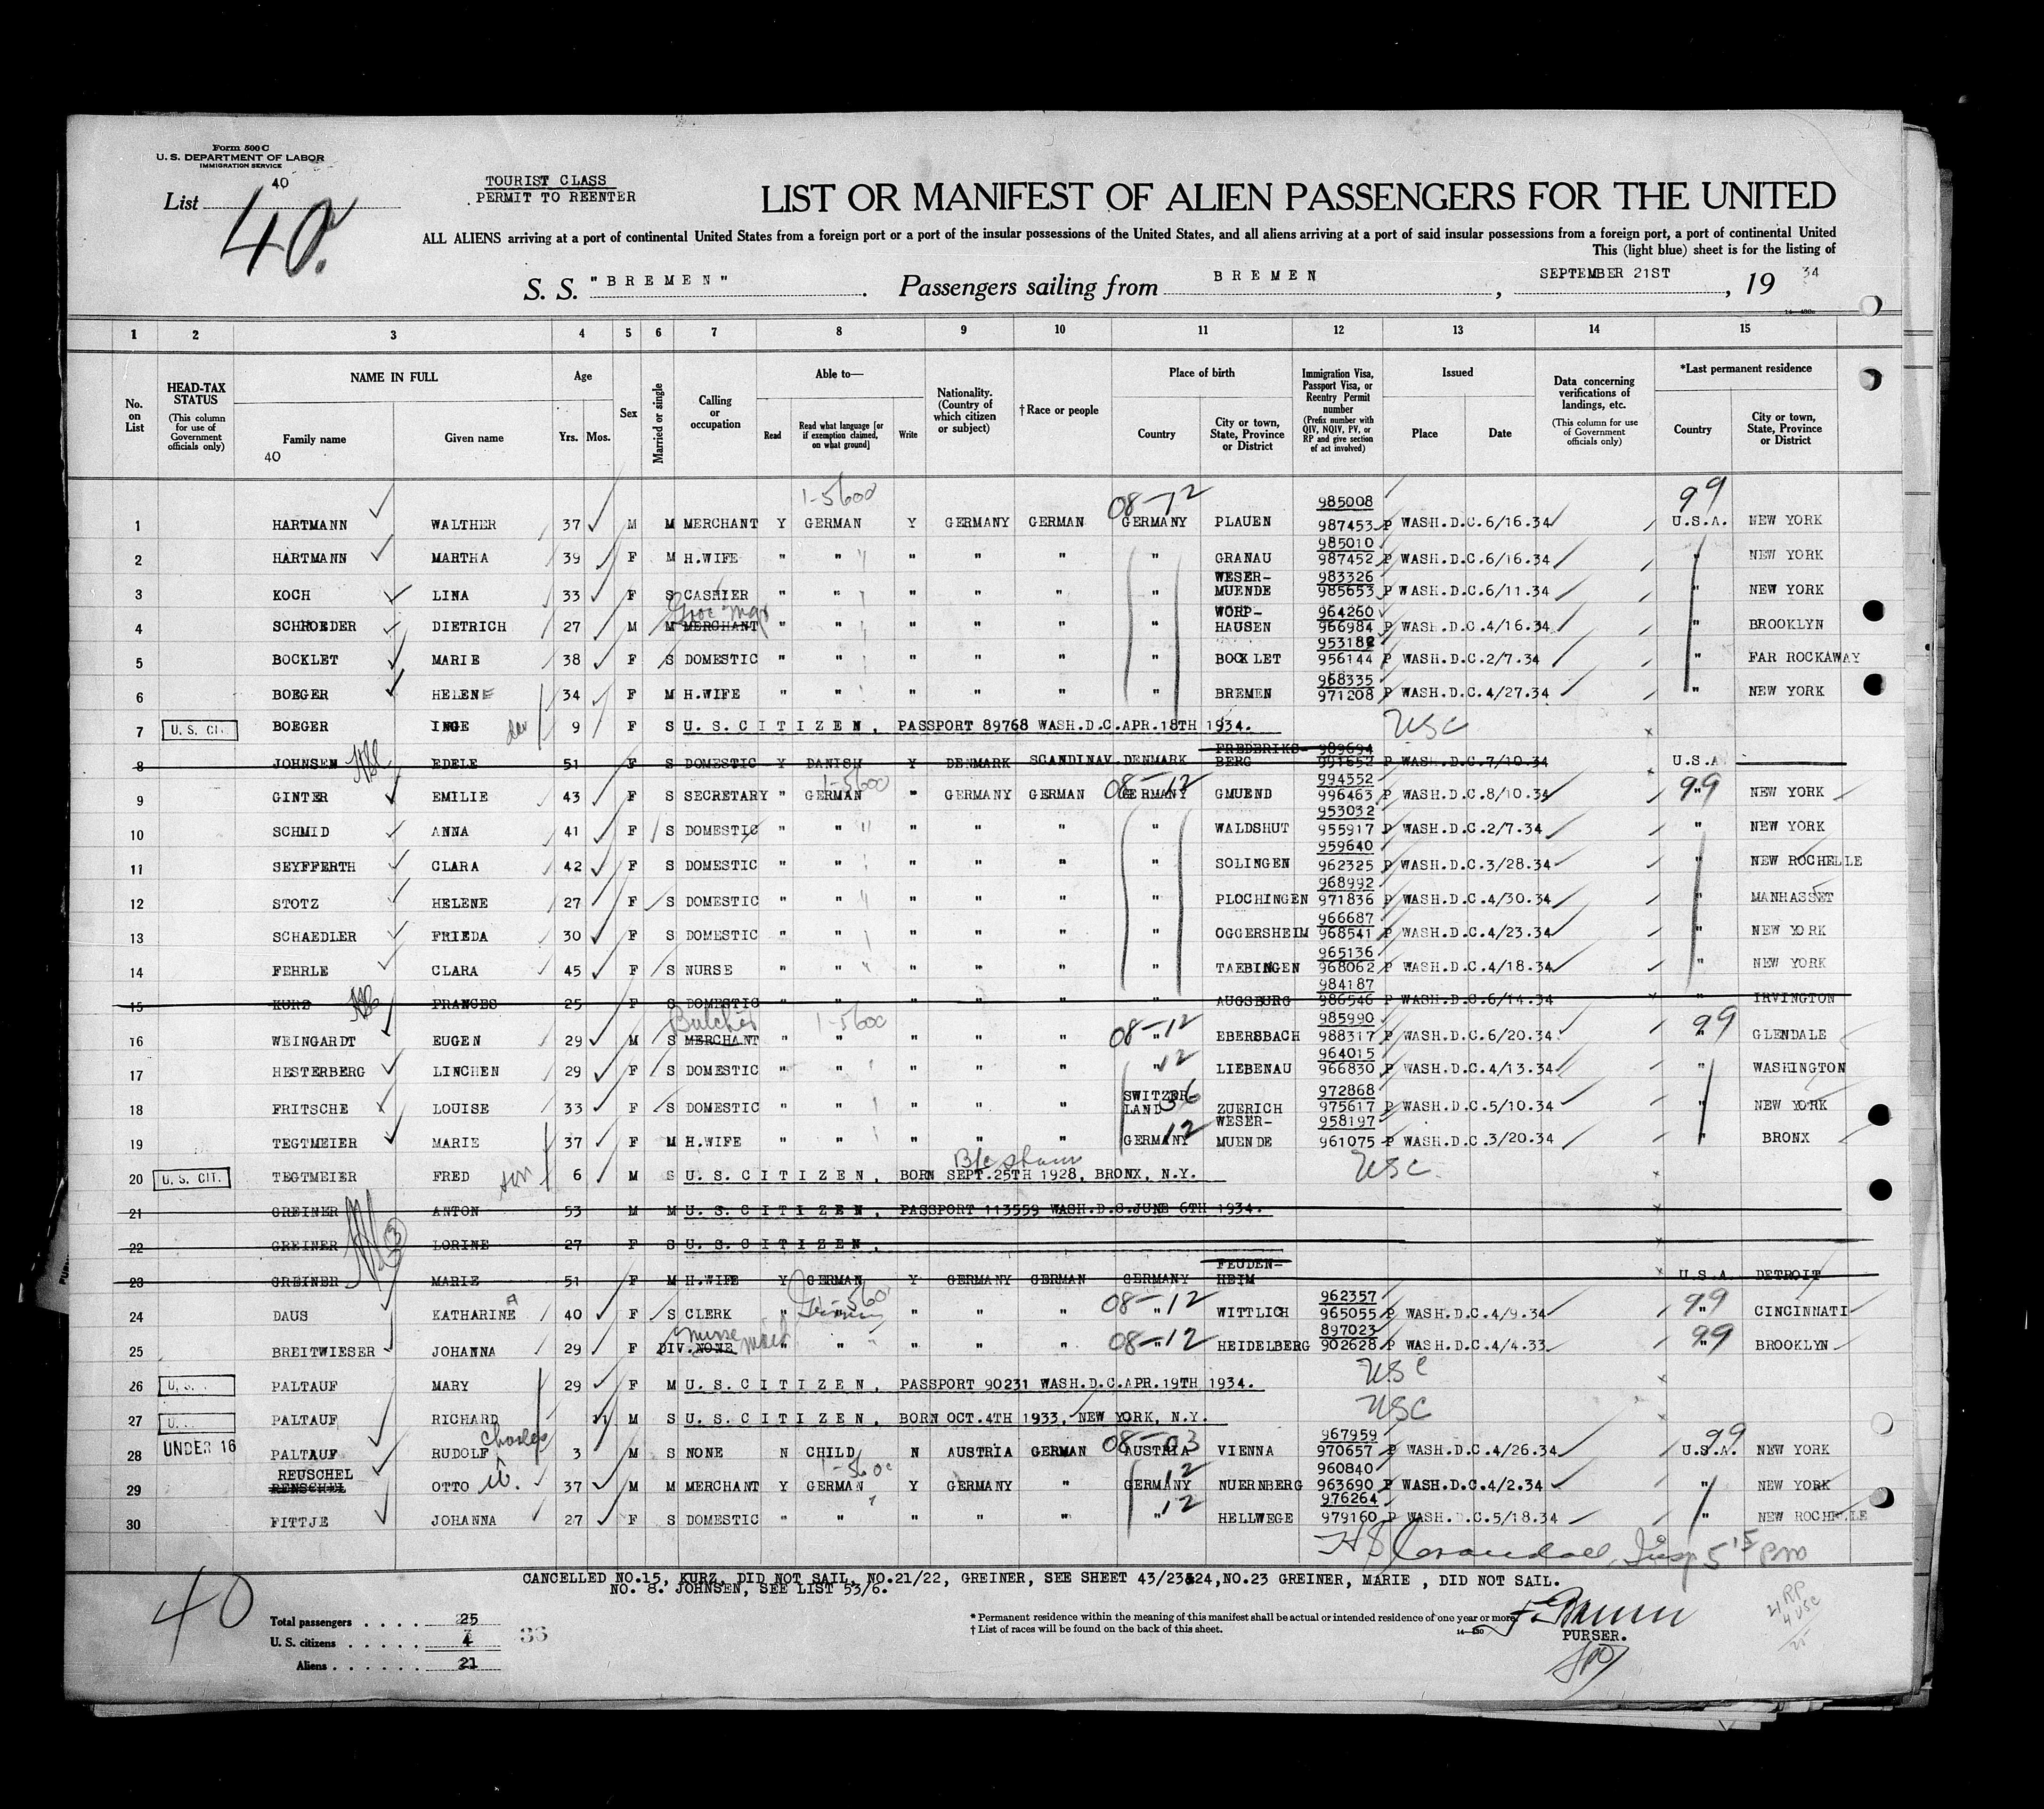 Form 500 C
U. S. DEPARTMENT OF LABOR
IMMIGRATION SERVICE
List 40
40
TOURIST CLASS
PERMIT TO REENTER
LIST OR MANIFEST OF ALIEN PASSENGERS FOR THE UNITED
ALL ALIENS arriving at a port of continental United States from a foreign port or a port of the insular possessions of the United States, and all aliens arriving at a port of said insular possessions from a foreign port, a port of continental United
This (light blue) sheet is for the listing of
S. S. "BREMEN". Passengers sailing from BREMEN, SEPTEMBER 21ST, 19 34
1 2 3 4 5 6 7 8 9 10 11 12 13 14 15
No. on List
HEAD-TAX STATUS (This column for use of Government officials only)
NAME IN FULL
Family name Given name
40
Age
Yrs. Mos.
Sex
Married or single
Calling or occupation
Able to—
Read Read what language [or if exemption claimed, on what ground] Write
Nationality. (Country of which citizen or subject)
†Race or people
Place of birth
Country City or town, State, Province or District
Immigration Visa, Passport Visa, or Reentry Permit number (Prefix number with QIV, NQIV, PV, or RP and give section of act involved)
Issued
Place Date
Data concerning verifications of landings, etc. (This column for use of Government officials only)
*Last permanent residence
Country City or town, State, Province or District
1-5600 08-12 985008 99
1 HARTMANN WALTHER 37 M M MERCHANT Y GERMAN Y GERMANY GERMAN GERMANY PLAUEN 987453 P WASH.D.C.6/16.34 U.S.A. NEW YORK
985010
2 HARTMANN MARTHA 39 F M H.WIFE " " " " " " GRANAU 987452 P WASH.D.C.6/16.34 " NEW YORK
WESER- 983326
3 KOCH LINA 33 F S CASHIER " " " " " " MUENDE 985653 P WASH.D.C.6/11.34 " NEW YORK
Groc Mgr WORP- 964260
4 SCHROEDER DIETRICH 27 M M MERCHANT " " " " " " HAUSEN 966984 P WASH.D.C.4/16.34 " BROOKLYN
953182
5 BOCKLET MARIE 38 F S DOMESTIC " " " " " " BOCKLET 956144 P WASH.D.C.2/7.34 " FAR ROCKAWAY
968335
6 BOEGER HELENE 34 F M H.WIFE " " " " " " BREMEN 971208 P WASH.D.C.4/27.34 " NEW YORK
7 U. S. CIT. BOEGER INGE 9 F S U. S. CITIZEN, PASSPORT 89768 WASH.D.C.APR.18TH 1934. USC
FREDERIKS- 989694
8 JOHNSEN EDELE 51 F S DOMESTIC Y DANISH Y DENMARK SCANDINAV. DENMARK BERG 991652 P WASH.D.C.7/10.34 U.S.A
1-5600 08-12 994552 99
9 GINTER EMILIE 43 F S SECRETARY " GERMAN " GERMANY GERMAN GERMANY GMUEND 996463 P WASH.D.C.8/10.34 " NEW YORK
953032
10 SCHMID ANNA 41 F S DOMESTIC " " " " " " WALDSHUT 955917 P WASH.D.C.2/7.34 " NEW YORK
959640
11 SEYFFERTH CLARA 42 F S DOMESTIC " " " " " " SOLINGEN 962325 P WASH.D.C.3/28.34 " NEW ROCHELLE
968992
12 STOTZ HELENE 27 F S DOMESTIC " " " " " " PLOCHINGEN 971836 P WASH.D.C.4/30.34 " MANHASSET
966687
13 SCHAEDLER FRIEDA 30 F S DOMESTIC " " " " " " OGGERSHEIM 968541 P WASH.D.C.4/23.34 " NEW YORK
965136
14 FEHRLE CLARA 45 F S NURSE " " " " " " TAEBINGEN 968062 P WASH.D.C.4/18.34 " NEW YORK
984187
15 KURZ FRANCES 25 F S DOMESTIC " " " " " " AUGSBURG 986546 P WASH.D.C.6/14.34 " IRVINGTON
Butcher 1-5600 08-12 985990 99
16 WEINGARDT EUGEN 29 M S MERCHANT " " " " " " EBERSBACH 988317 P WASH.D.C.6/20.34 " GLENDALE
12 964015
17 HESTERBERG LINCHEN 29 F S DOMESTIC " " " " " " LIEBENAU 966830 P WASH.D.C.4/13.34 " WASHINGTON
SWITZER- 36 972868
18 FRITSCHE LOUISE 33 F S DOMESTIC " " " " " LAND ZUERICH 975617 P WASH.D.C.5/10.34 " NEW YORK
WESER- 958197
19 TEGTMEIER MARIE 37 F M H.WIFE " " " " " GERMANY 12 MUENDE 961075 P WASH.D.C.3/20.34 " BRONX
B/c shown
20 U. S. CIT. TEGTMEIER FRED son 6 M S U. S. CITIZEN, BORN SEPT.25TH 1928, BRONX, N.Y. USC
21 GREINER ANTON 53 M M U. S. CITIZEN, PASSPORT 113559 WASH.D.C.JUNE 6TH 1934.
22 GREINER LORINE 27 F S U. S. CITIZEN,
FEUDEN-
23 GREINER MARIE 51 F M H.WIFE Y GERMAN Y GERMANY GERMAN GERMANY HEIM U.S.A. DETROIT
08-12 962357 99
24 DAUS KATHARINE A 40 F S CLERK " German " " " " WITTLICH 965055 P WASH.D.C.4/9.34 CINCINNATI
nurse maid 08-12 897023 99
25 BREITWIESER JOHANNA 29 F DIV. NONE " " " " " " HEIDELBERG 902628 P WASH.D.C.4/4.33 " BROOKLYN
26 U.S. PALTAUF MARY 29 F M U. S. CITIZEN, PASSPORT 90231 WASH.D.C.APR.19TH 1934. USC
27 U. PALTAUF RICHARD 11 M S U. S. CITIZEN, BORN OCT.4TH 1933, NEW YORK, N.Y. USC
UNDER 16 Charles 08-03 967959 99
28 PALTAUF RUDOLF 3 M S NONE N CHILD N AUSTRIA GERMAN AUSTRIA VIENNA 970657 P WASH.D.C.4/26.34 U.S.A. NEW YORK
REUSCHEL 12 960840
29 RENSCHEL OTTO W. 37 M M MERCHANT Y GERMAN Y GERMANY " GERMANY NUERNBERG 963690 P WASH.D.C.4/2.34 " NEW YORK
12 976264
30 FITTJE JOHANNA 27 F S DOMESTIC " " " " " " HELLWEGE 979160 P WASH.D.C.5/18.34 " NEW ROCHELLE
CANCELLED NO.15, KURZ, DID NOT SAIL, NO.21/22, GREINER, SEE SHEET 43/23&24,NO.23 GREINER, MARIE , DID NOT SAIL.
NO. 8. JOHNSEN, SEE LIST 53/6.
40
Total passengers . . . . 25
U. S. citizens . . . . . 4
36
Aliens . . . . . . 21
* Permanent residence within the meaning of this manifest shall be actual or intended residence of one year or more.
† List of races will be found on the back of this sheet.
PURSER.
21 RP
4 USC
25